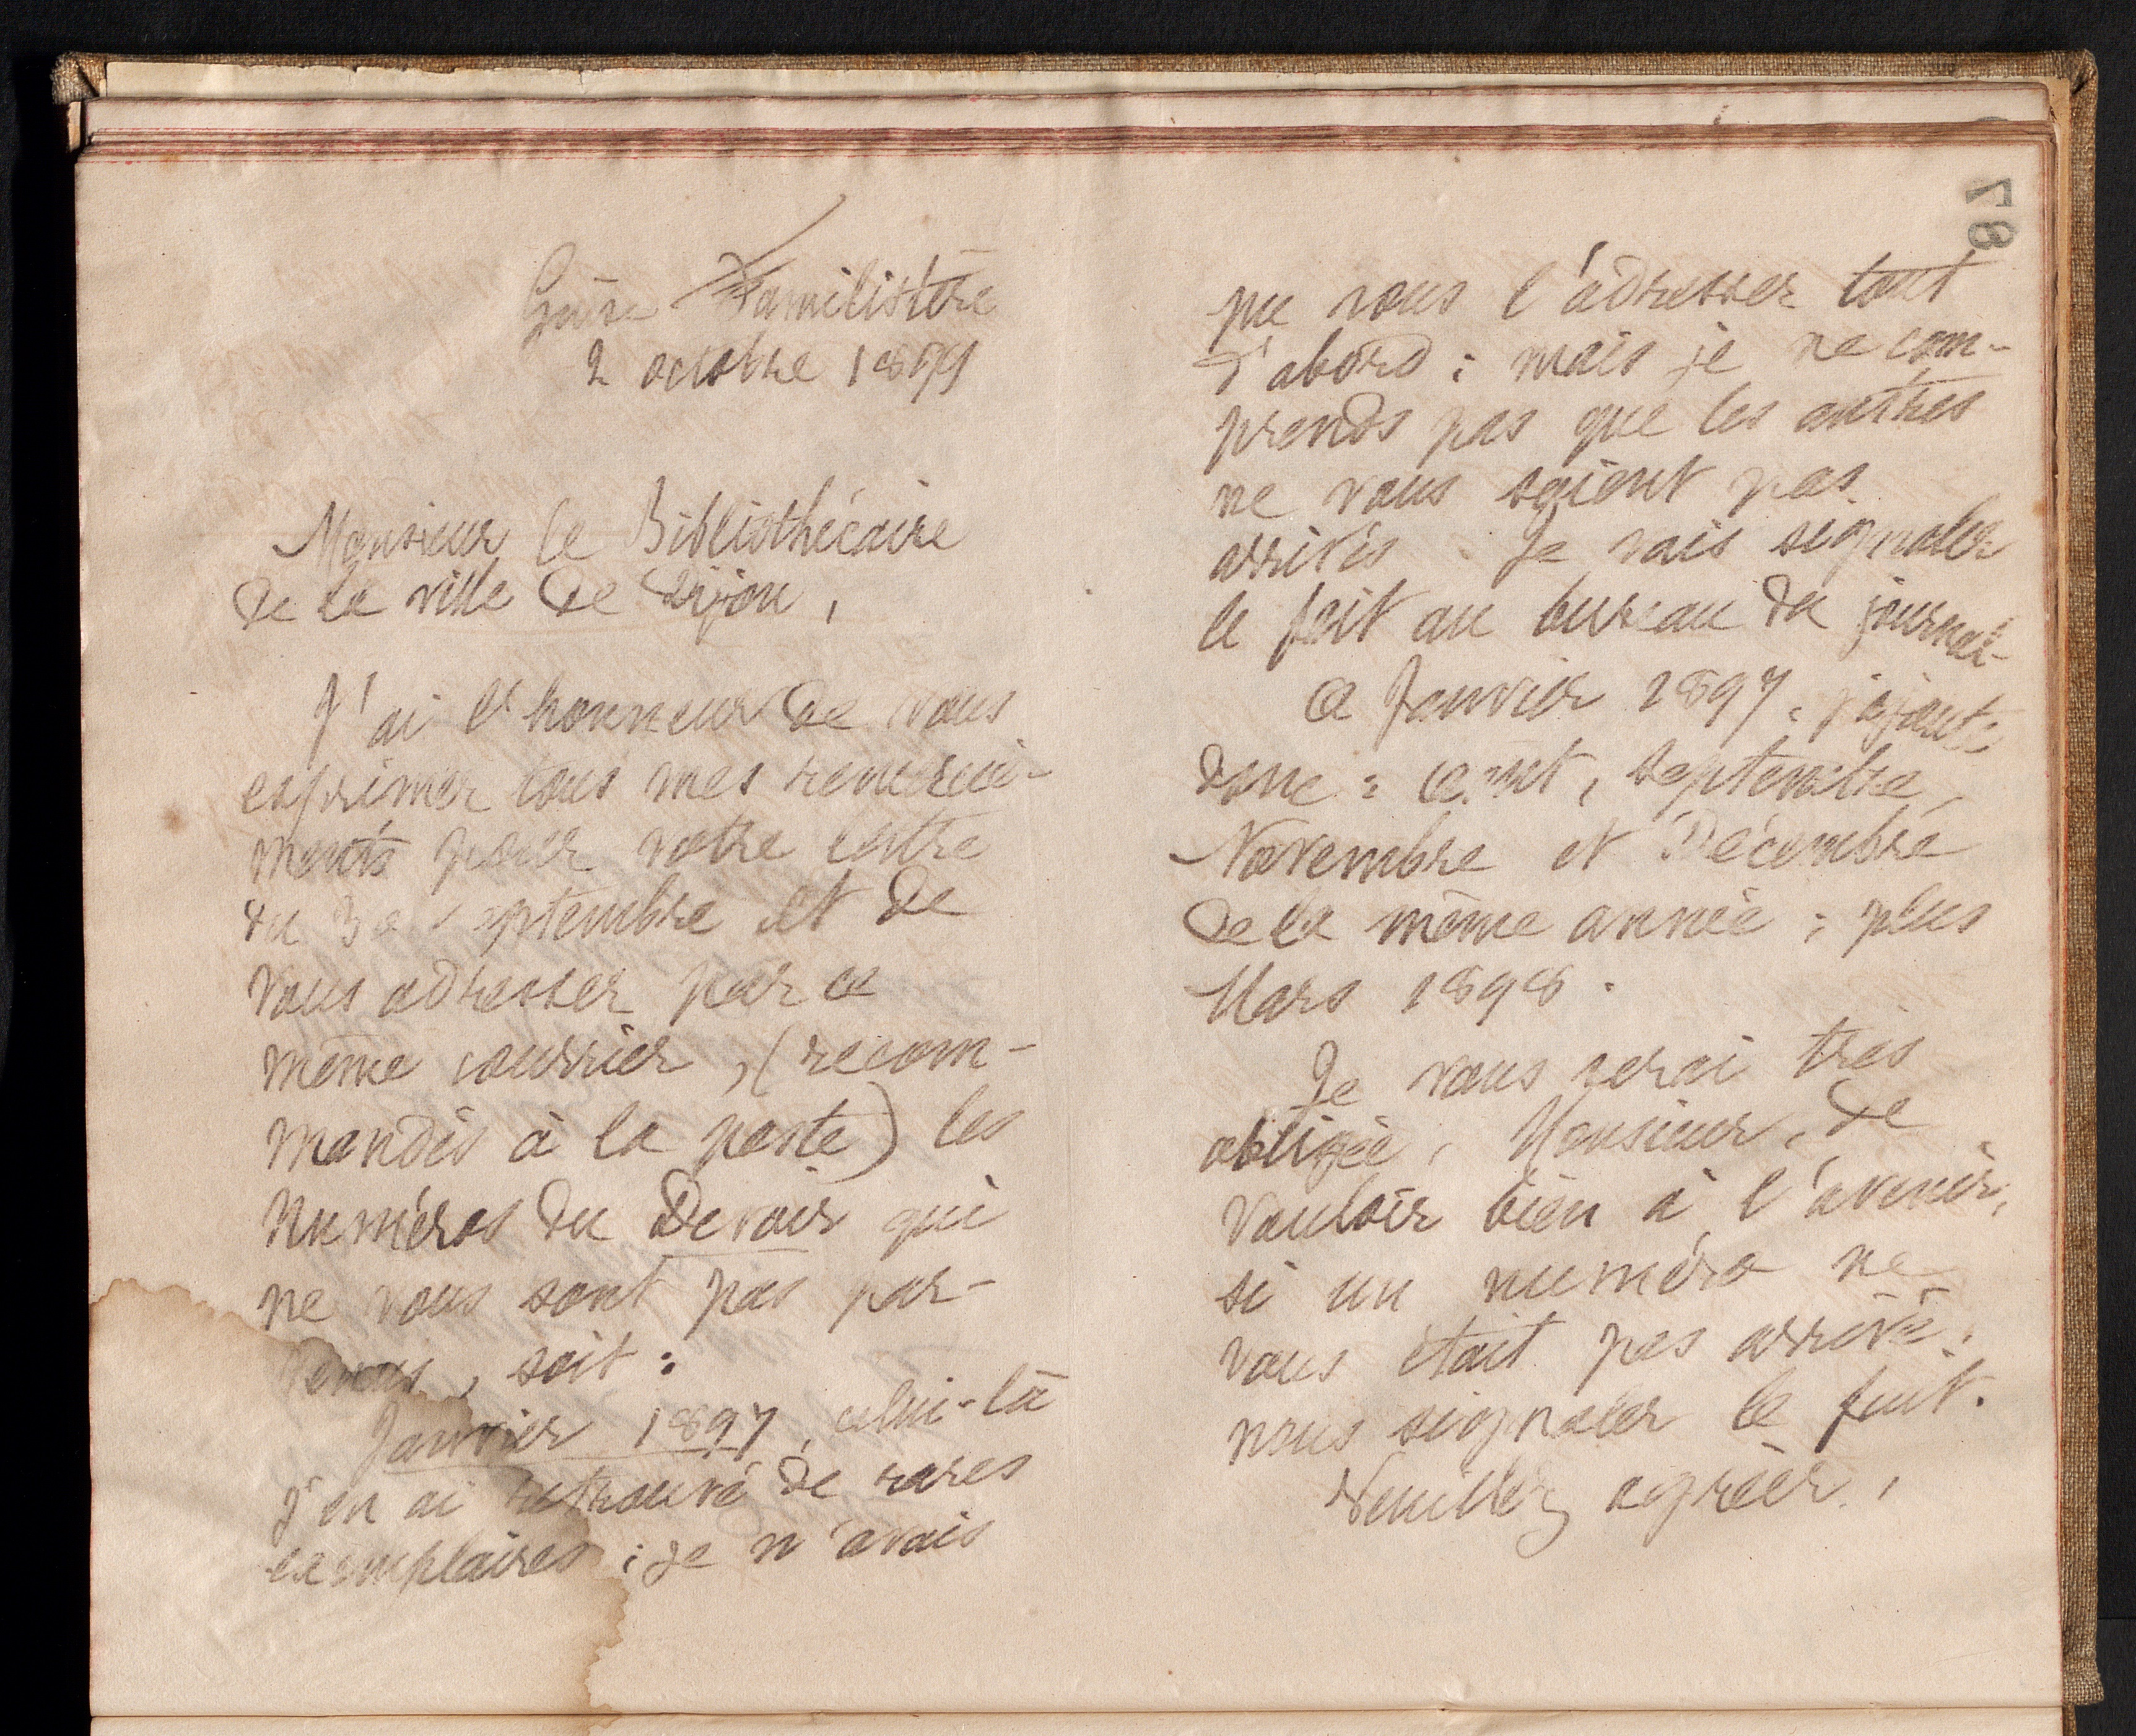 Guise Familistère
2 octobre 1899
Monsieur le Bibliothécaire
de la ville de Dijon,
J'ai l'honneur de vous
exprimer tous mes remercie-
ments pour votre lettre
du 30 septembre et de
vous adresser par ce
même courrier, (recom-
mandés à la poste) les
numéros du Devoir qui
ne vous sont pas par-
venus, soit :
Janvier 1897, celui-là
j'en ai retrouvé de rares
exemplaires ; je n'avais
78
pu vous l'adresser tout
d'abord ; mais je ne com-
prends pas que les autres
ne vous soient pas
arrivés. Je vais signaler
le fait au bureau du journal
A Janvier 1897, j'ajoute
donc : août, septembre,
Novembre et Décembre
de la même année ; plus
Mars 1898.
Je vous serai très
obligée, Monsieur, de
vouloir bien à l'avenir,
si un numéro ne
vous était pas arrivé,
nous signaler le fait.
Veuillez agréer,